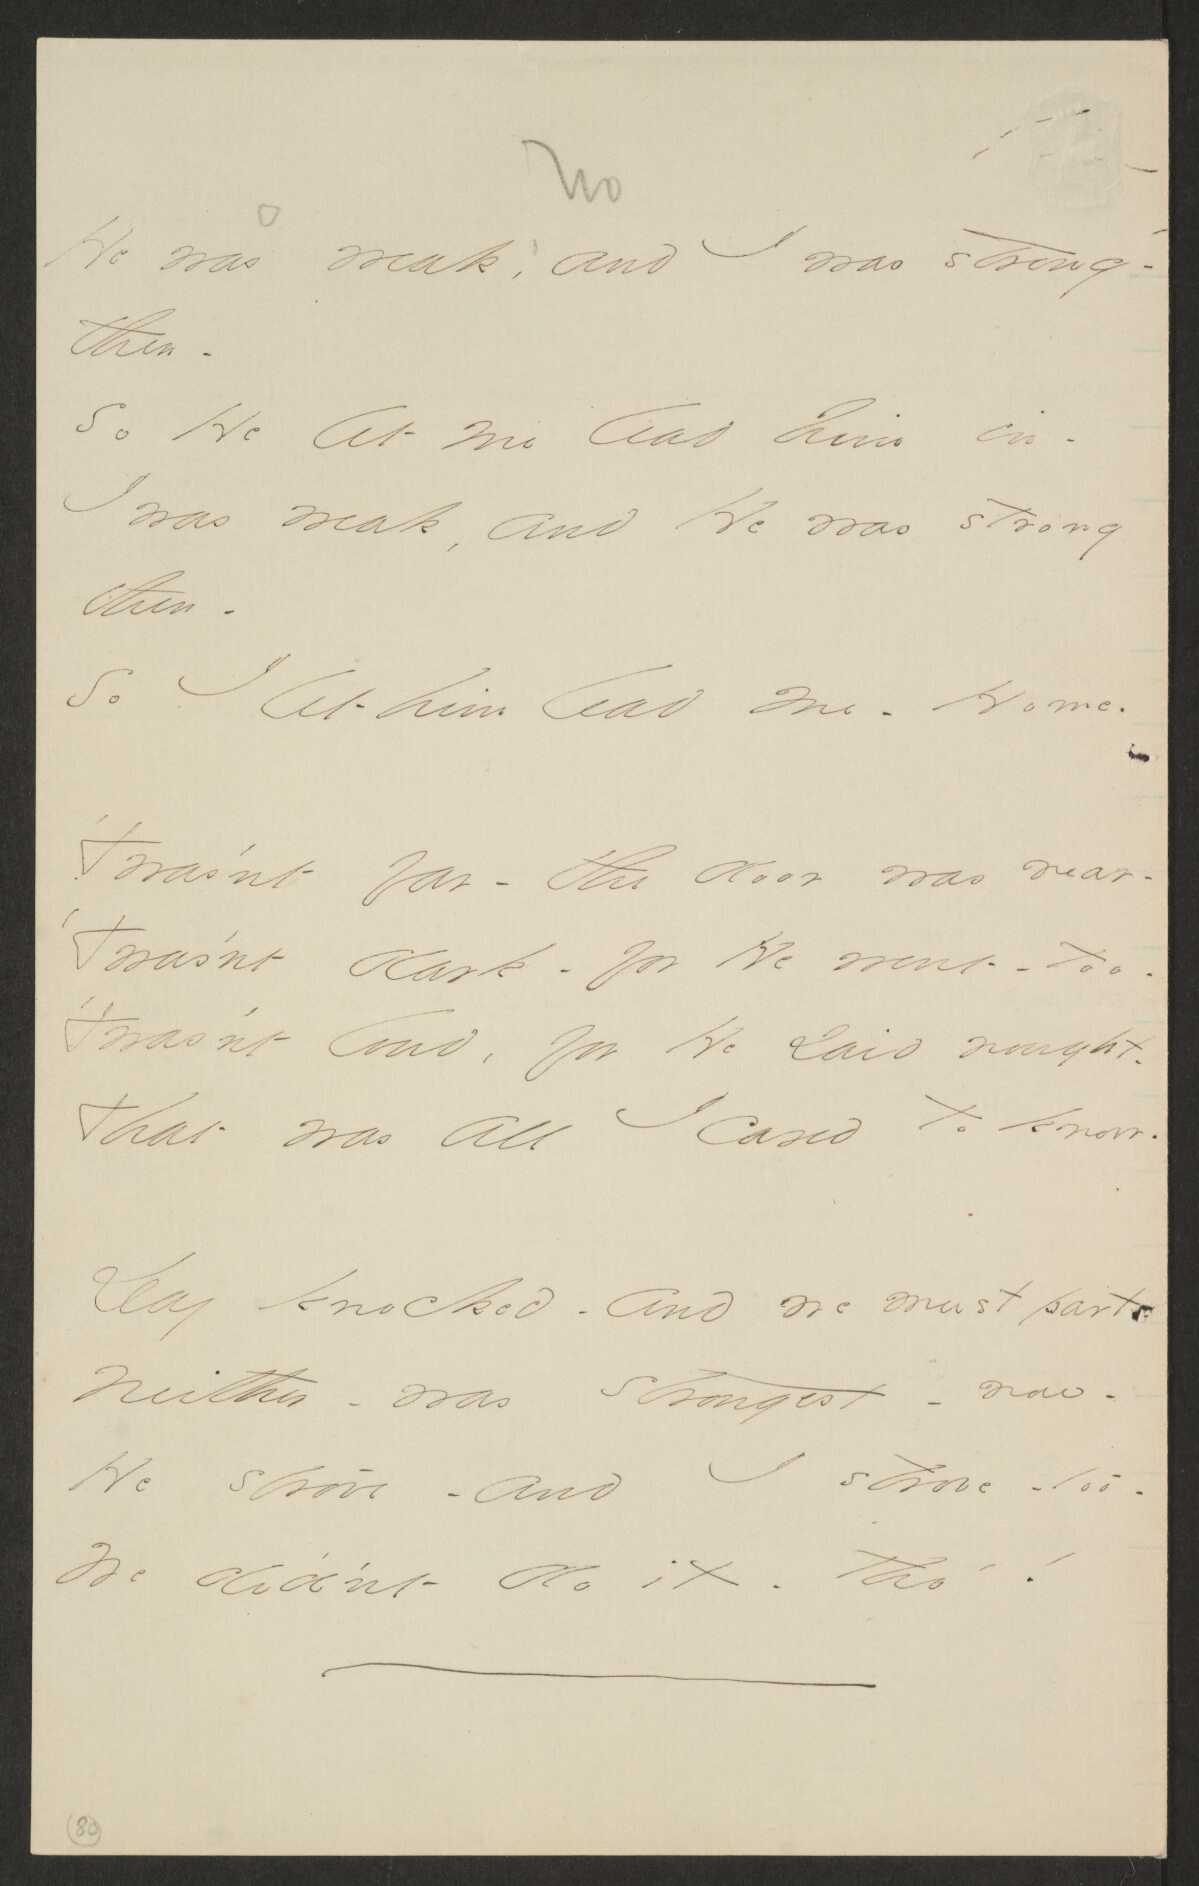 No
He was weak, and I was strong -
then -
So He let me lead him in -
I was weak, and He was strong
then -
So I let him lead me - Home.
'Twas'nt far - the door was near -
'Twas'nt dark - for He went - too -
'Twas'nt loud, for He said nought -
That was all I cared to know.
Day knocked - and we must part -
Neither - was strongest - now -
He strove - and I strove - too -
We did'nt do it - tho'!
80